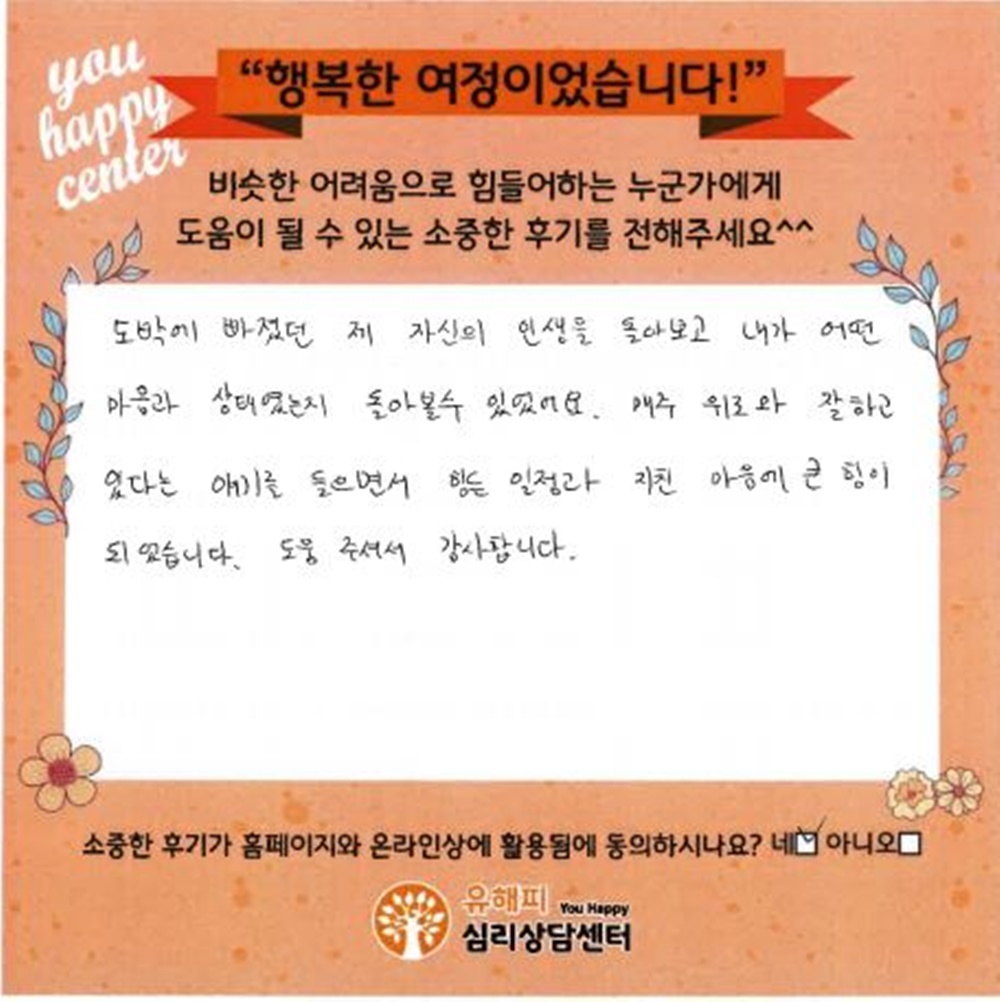 you
happy
center
“행복한 여정이었습니다!”
비슷한 어려움으로 힘들어하는 누군가에게
도움이 될 수 있는 소중한 후기를 전해주세요^^
도박에 빠졌던 제 자신의 인생을 돌아보고 내가 어떤
마음과 상태였는지 돌아볼수 있었어요. 매주 위로와 잘하고
있다는 얘기를 들으면서 힘든 일정과 지친 마음에 큰 힘이
되었습니다. 도움 주셔서 감사합니다.
소중한 후기가 홈페이지와 온라인상에 활용됨에 동의하시나요? 네☑ 아니오☐
유해피 You Happy
심리상담센터